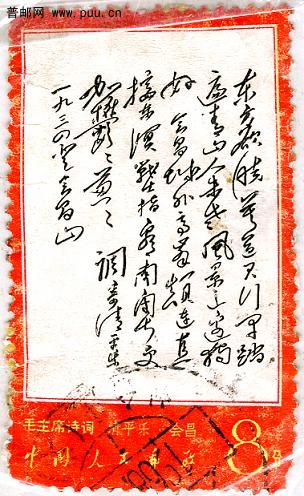 普邮网 www.puu.cn
东方欲晓莫道君行早踏
遍青山人未老风景这边独
好会昌城外高峰颠连直
接东溟战士指看南粤更
加鬱々葱々 调寄清平乐
一九三四登会昌山
毛主席诗词 清平乐 会昌
中国人民邮政 8分